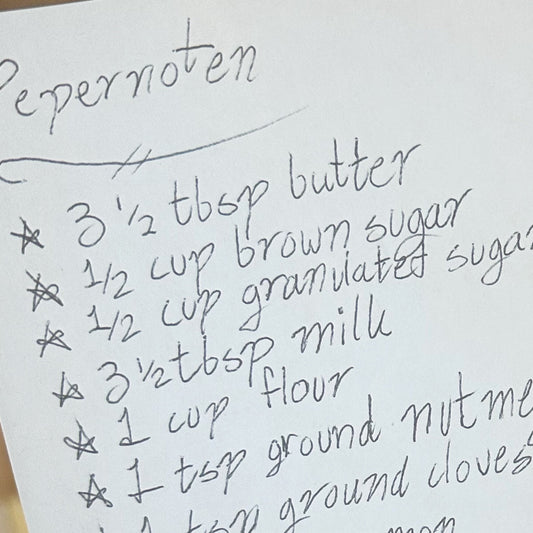 Pepernoten
3 1/2 tbsp butter
1/2 cup brown sugar
1/2 cup granulated sugar
3 1/2 tbsp milk
1 cup flour
1 tsp ground nutme
1 tsp ground cloves